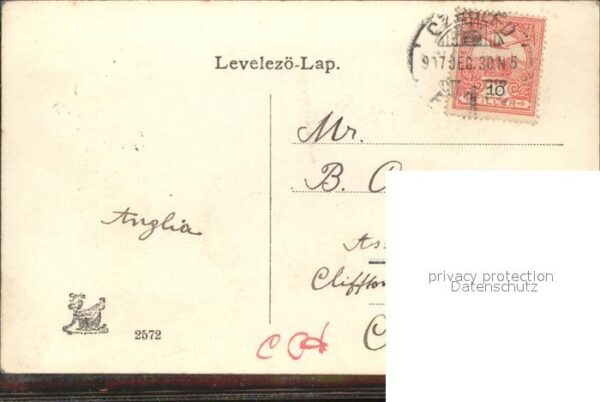 Levelezö-Lap.
907 DEC. 30 N 5
10
Mr.
B.
Anglia
As
Clifton
privacy protection
Datenschutz
Serie
2572